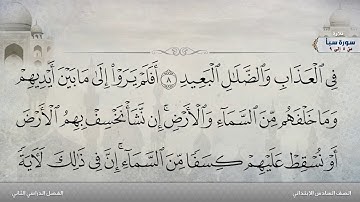 تلاوة
سورة سبأ
فِى ٱلْعَذَابِ وَٱلضَّلَٰلِ ٱلْبَعِيدِ ٨ أَفَلَمْ يَرَوْا۟ إِلَىٰ مَا بَيْنَ أَيْدِيهِمْ
وَمَا خَلْفَهُم مِّنَ ٱلسَّمَآءِ وَٱلْأَرْضِ ۚ إِن نَّشَأْ نَخْسِفْ بِهِمُ ٱلْأَرْضَ
أَوْ نُسْقِطْ عَلَيْهِمْ كِسَفًا مِّنَ ٱلسَّمَآءِ ۚ إِنَّ فِى ذَٰلِكَ لَءَايَةً
الصف السادس الابتدائي
الفصل الدراسي الثاني